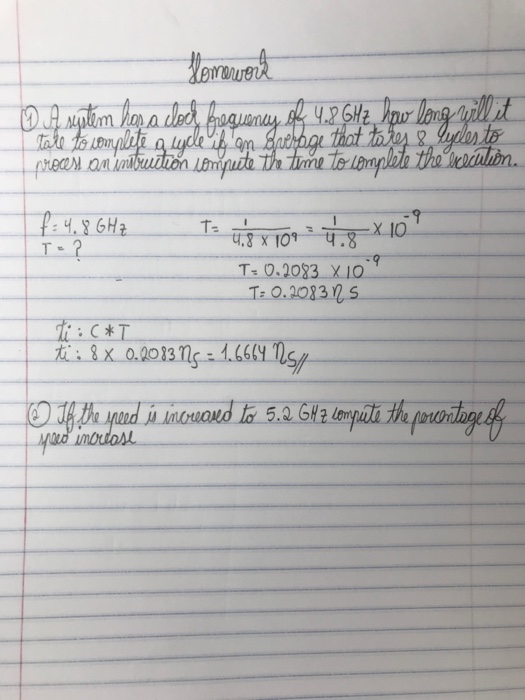 Homework
① A system has a clock frequency of 4.8 GHz how long will it
take to complete a cycle if an average that takes 8 cycles to
process an instruction compute the time to complete the execution.
f = 4.8 GHz
T = ?
T = 1 / 4.8 x 10⁹ = 1 / 4.8 x 10⁻⁹
T = 0.2083 x 10⁻⁹
T = 0.2083 ηs
ti : C * T
ti : 8 x 0.2083 ηs = 1.6664 ηs //
② If the speed is increased to 5.2 GHz compute the percentage of
speed increase